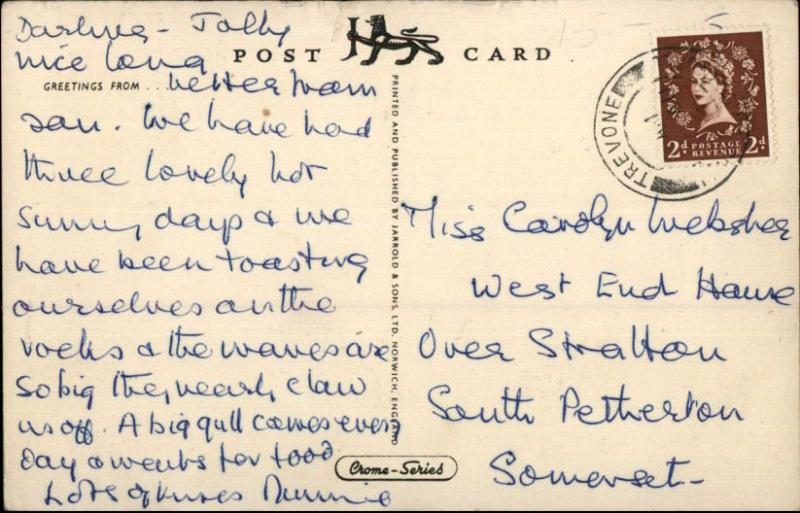 Darling - Jolly
nice long
POST CARD
GREETINGS FROM ...
letter from
you. We have had
three lovely hot
sunny days & we
have been toasting
ourselves on the
rocks & the waves are
so big they nearly claw
us off. A big gull comes every
day & waits for food
Lots of kisses Mummie
PRINTED AND PUBLISHED BY JARROLD & SONS, LTD. NORWICH, ENGLAND
Crome-Series
TREVONE
2d POSTAGE 2d
REVENUE
Miss Carolyn Webster
West End House
Over Stratton
South Petherton
Somerset-